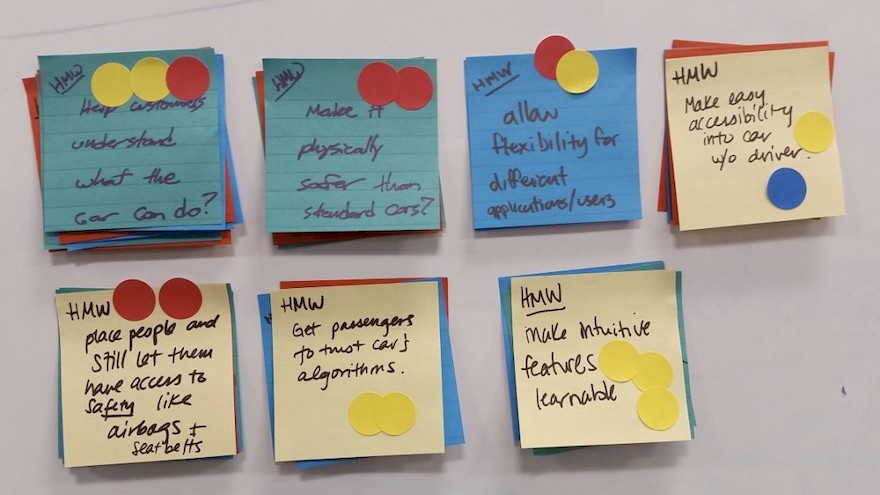 HMW
Help customers
understand
what the
car can do?
HMW
Make it
physically
safer than
standard cars?
HMW
allow
flexibility for
different
applications/users
HMW
Make easy
accessibility
into car
w/o driver.
HMW
place people and
still let them
have access to
safety like
airbags +
seatbelts
HMW
Get passengers
to trust car's
algorithms.
HMW
make intuitive
features
learnable